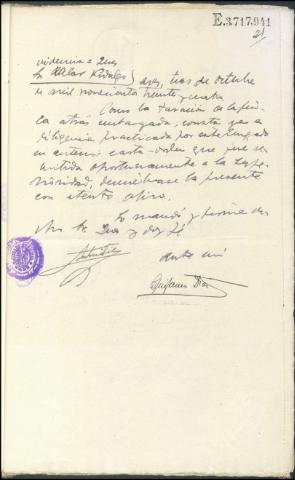 E.3717.941
Providencia = Juez
Sr. Hidalgo } a tres de Octubre
de mil novecientos treinta y
Como la tasación de la fin-
ca atrás embargada, consta ya a
diligencia practicada por este Juzgado
en anterior carta-orden que fue re-
mitida oportunamente a la Supe-
rioridad, devuélvase la presente
con atento oficio.
Lo mandó y firma el
Sr. Juez y doy fé
Ante mí